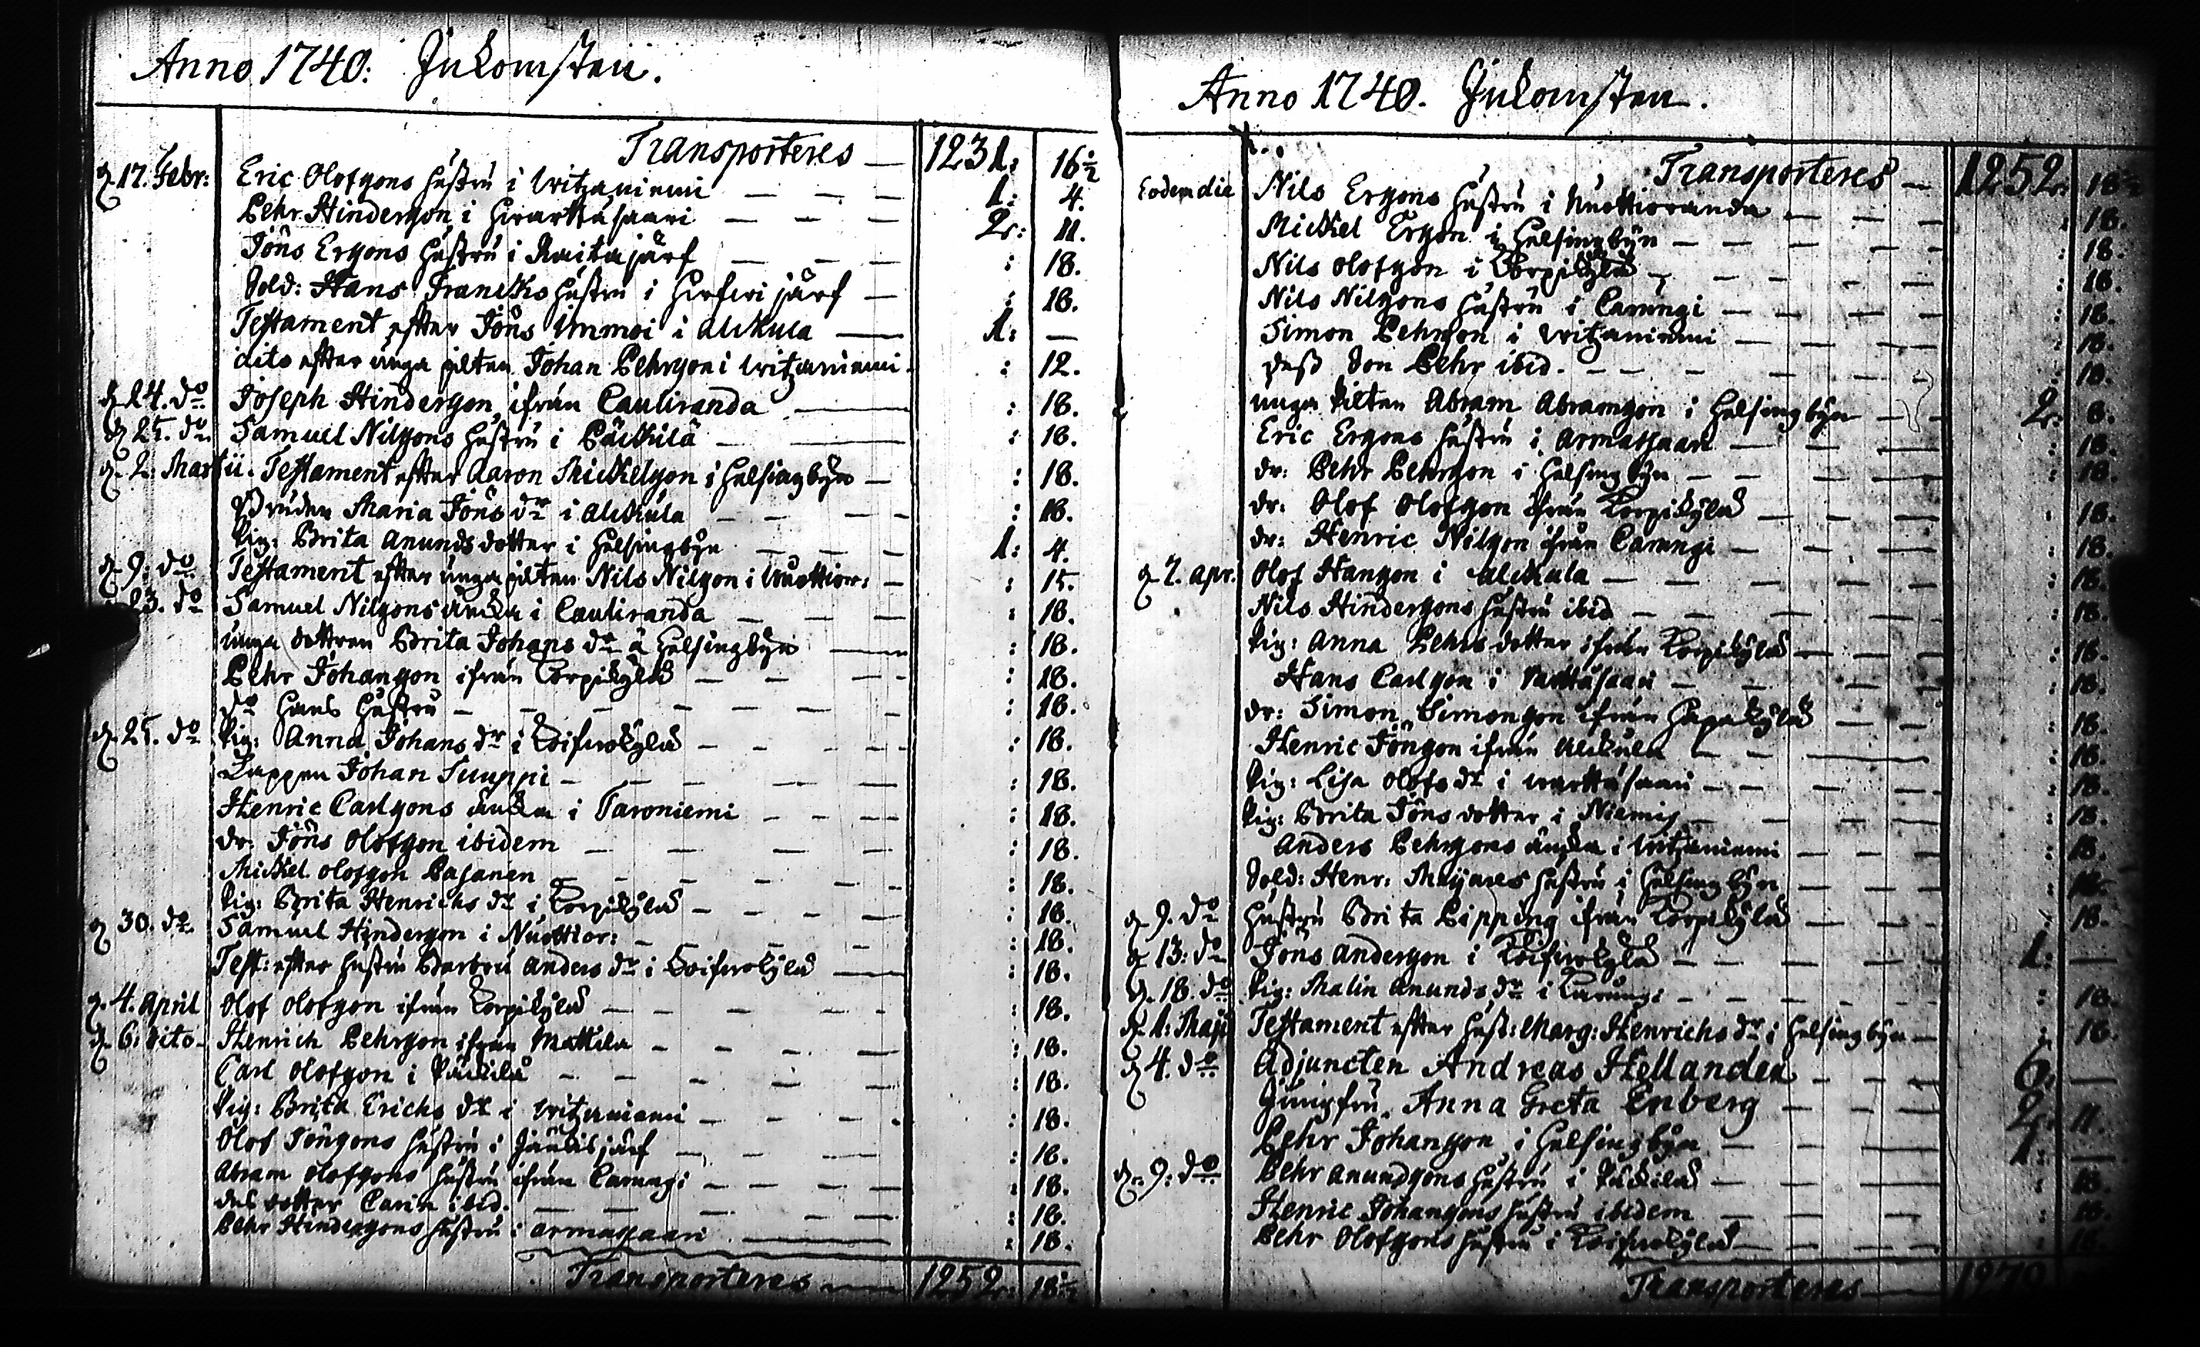 Anno 1740. Inkomsten.
Transporteres — 1231: 16½
d. 17. Febr: Eric Olofsons hustru i Witzaniemi — 1: 4.
Pehr Hinderson i Hwarttåsaari — 2: 11.
Jöns Ersons hustru i Raitajärf — : 18.
Sold: Hans Francks hustru i Hirfwijärf — : 18.
Testament efter Jöns Immoi i Alkkula — 1: —
dito efter unga pilten Johan Pehrson i Witzaniemi. : 12.
d. 24. do Joseph Hinderson ifrån Cauliranda — : 18.
d. 25. do. Samuel Nilsons hustru i Päckilä — : 18.
d. 2. Martii. Testament efter Aaron Mickelson i Helsingbyn — : 18.
Bruden Maria Jöns dr i Alkkula — : 18.
Pig: Brita Anunds dotter i Helsingbyn — 1: 4.
d. 9. do Testament efter unga pilten Nils Nilson i Nuottior: — : 15.
23. do Samuel Nilsons änka i Cauliranda — : 18.
unga dottren Brita Johans dr å Helsingbyn — : 18.
Pehr Johanson ifrån Korpikylä — : 18.
do hans hustru — : 18.
d. 25. do Pig: Anna Johans dr i Koifwokylä — : 18.
Lappen Johan Suuppi — : 18.
Henric Carlsons änka i Taroniemi — : 18.
dr: Jöns Olofson ibidem — : 18.
Mickel Olofson Pasanen — : 18.
Pig: Brita Henrichs dr i Korpikylä — : 18.
d. 30. do. Samuel Hinderson i Nuottior: — : 18.
Test: efter hustru Barbru Anders dr i Koifwokylä — : 18.
d. 4. April Olof Olofson ifrån Korpikylä — : 18.
d. 6. dito Henrich Pehrson ifrån Mattila — : 18.
Carl Olofson i Päckilä — : 18.
Pig: Brita Erichs dr i Witzaniemi — : 18.
Olof Jönsons hustru i Jäukisjärf — : 18.
Abram Olofsons hustru ifrån Carungi — : 18.
des dotter Carin ibid. — : 18.
Pehr Hindersons hustru i Armassaari — : 18.
Transporteres — 1252: 18½
Anno 1740. Inkomsten.
Transporteres — 1252: 18½
Eodem die Nils Ersons hustru i Nuottioranda — : 18.
Mickel Erson i Helsingbyn — : 18.
Nils Olofson i Korpikylä — : 18.
Nils Nilsons hustru i Carungi — : 18.
Simon Pehrson i Witzaniemi — : 18.
Dess Son Pehr ibid. — : 18.
unga Pilten Abram Abramson i Helsingbyn — 2: 8.
Eric Ersons hustru i Armassaari — : 18.
dr: Pehr Pehrson i Helsingbyn — : 18.
dr: Olof Olofson ifrån Korpikylä — : 18.
dr: Henric Nilson ifrån Carungi — : 18.
d. 7. apr. Olof Hanson i Alkkula — : 18.
Nils Hindersons hustru ibid — : 18.
Pig: Anna Pehrs dotter ifrån Korpikylä — : 18.
Hans Carlson i — : 18.
dr: Simon Simonson ifrån Hapakylä — : 18.
Henric Jönson ifrån Alkkula — : 18.
Pig: Lisa Olofs dr i Warttåsaari — : 18.
Pig: Brita Jöns dotter i Niemis — : 18.
Anders Pehrsons änka i Witzaniemi — : 18.
Sold: Henr: hustru i Helsingbyn — 18.
d. 9. do hustru Brita Pipping ifrån Korpikylä — : 18.
d. 13. do Jöns Anderson i Koifwokylä — 1: —
d. 18. do Pig: Malin Anunds dr i Carungi — : 18.
d. 1. Maji Testament efter hust: Marg: Henrichs dr i Helsingbyn — : 18.
d. 4. do Adjuncten Andreas Hellander — 6: —
Jungfru Anna Greta Enberg — 2: 11.
Pehr Johanson i Helsingbyn — 1: —
d. 9. do Pehr Anundsons hustru i Päckilä — : 18.
Henric Johansons hustru ibidem — : 18.
Pehr Olofsons hustru i Koifwokylä — : 18.
Transporteres —